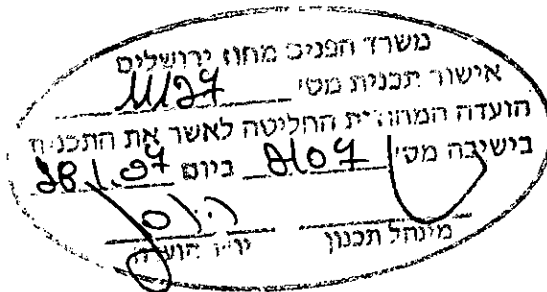 משרד הפנים מחוז ירושלים
אישור תכנית מס' 11127
הועדה המחוזית החליטה לאשר את התכנית
בישיבה מס' ביום
מינהל תכנון יו"ר הועדה